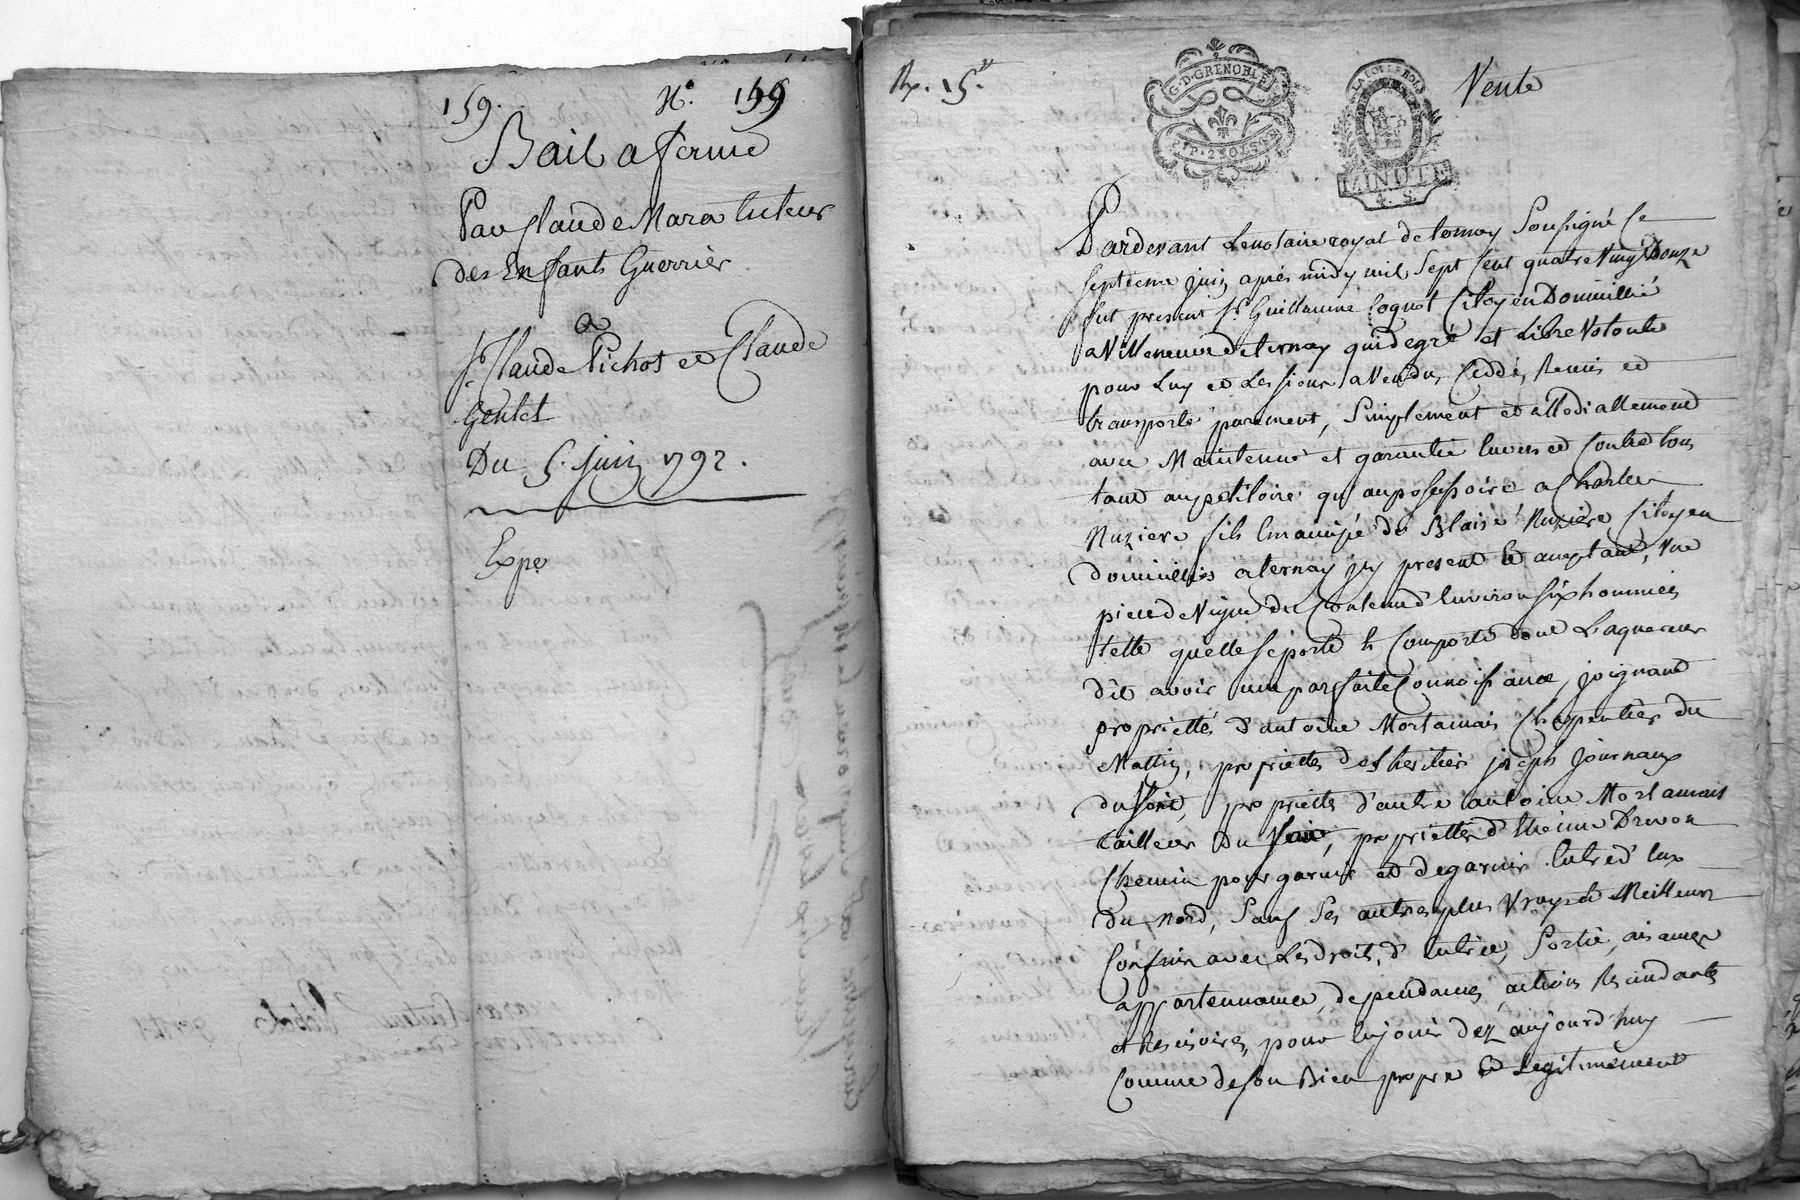 159. N.° 159
Bail a ferme
Par Claude Mara tuteur
des Enfants Guerrier
a
Sr. Claude Pichot et Claude
Gentet
Du 5. juin 1792.
Expé
15.
G.D.GRENOBLE
LA LOI LE ROI
MINUTE
4. S.
Vente
Pardevant Le notaire royal de ternay Soussigné Ce
septieme juin après midy mil Sept Cent quatre Vingt Douze
fut present Sr. Guillaume Coquet Citoyen Domicillié
a Villeneuve de ternay qui de gré et Libre Volonté
pour Luy et Les siens a Vendu, Ceddé, Remis et
transporté purement, Simplement et allodiallement
avec Maintenue et garantie Envers et Contre tous
tant au petitoire qu'au possessoire a Charles
Nuziere fils Emancipé de Blaise Nuziere Citoyen
domicilliés a ternay icy present et acceptant, Une
piece de Vigne du Contenu d'Environ Six hommées
telle qu'elle Se porte et Comporte dont L'aquereur
dit avoir une parfaite Connoissance, joignant
propriettés d'antoine Mortamais Charpentier du
Matin, propriettés des heritiers joseph journaux
du Soir, propriettés d'autre antoine Mortamais
tailleur Du propriettés d'Etienne Drevon
Chemin pour garnir et degarnir Entre d'Eux
du nord, Sauf Ses autres plus Vrays et Meilleurs
Confins avec Les droits, d'Entrée, Sortie, aisances
appartenances, dependances, actions Rescindantes
et Rescisoires, pour en jouir dez aujourd'huy
Comme de Son Bien propre et Legitimement